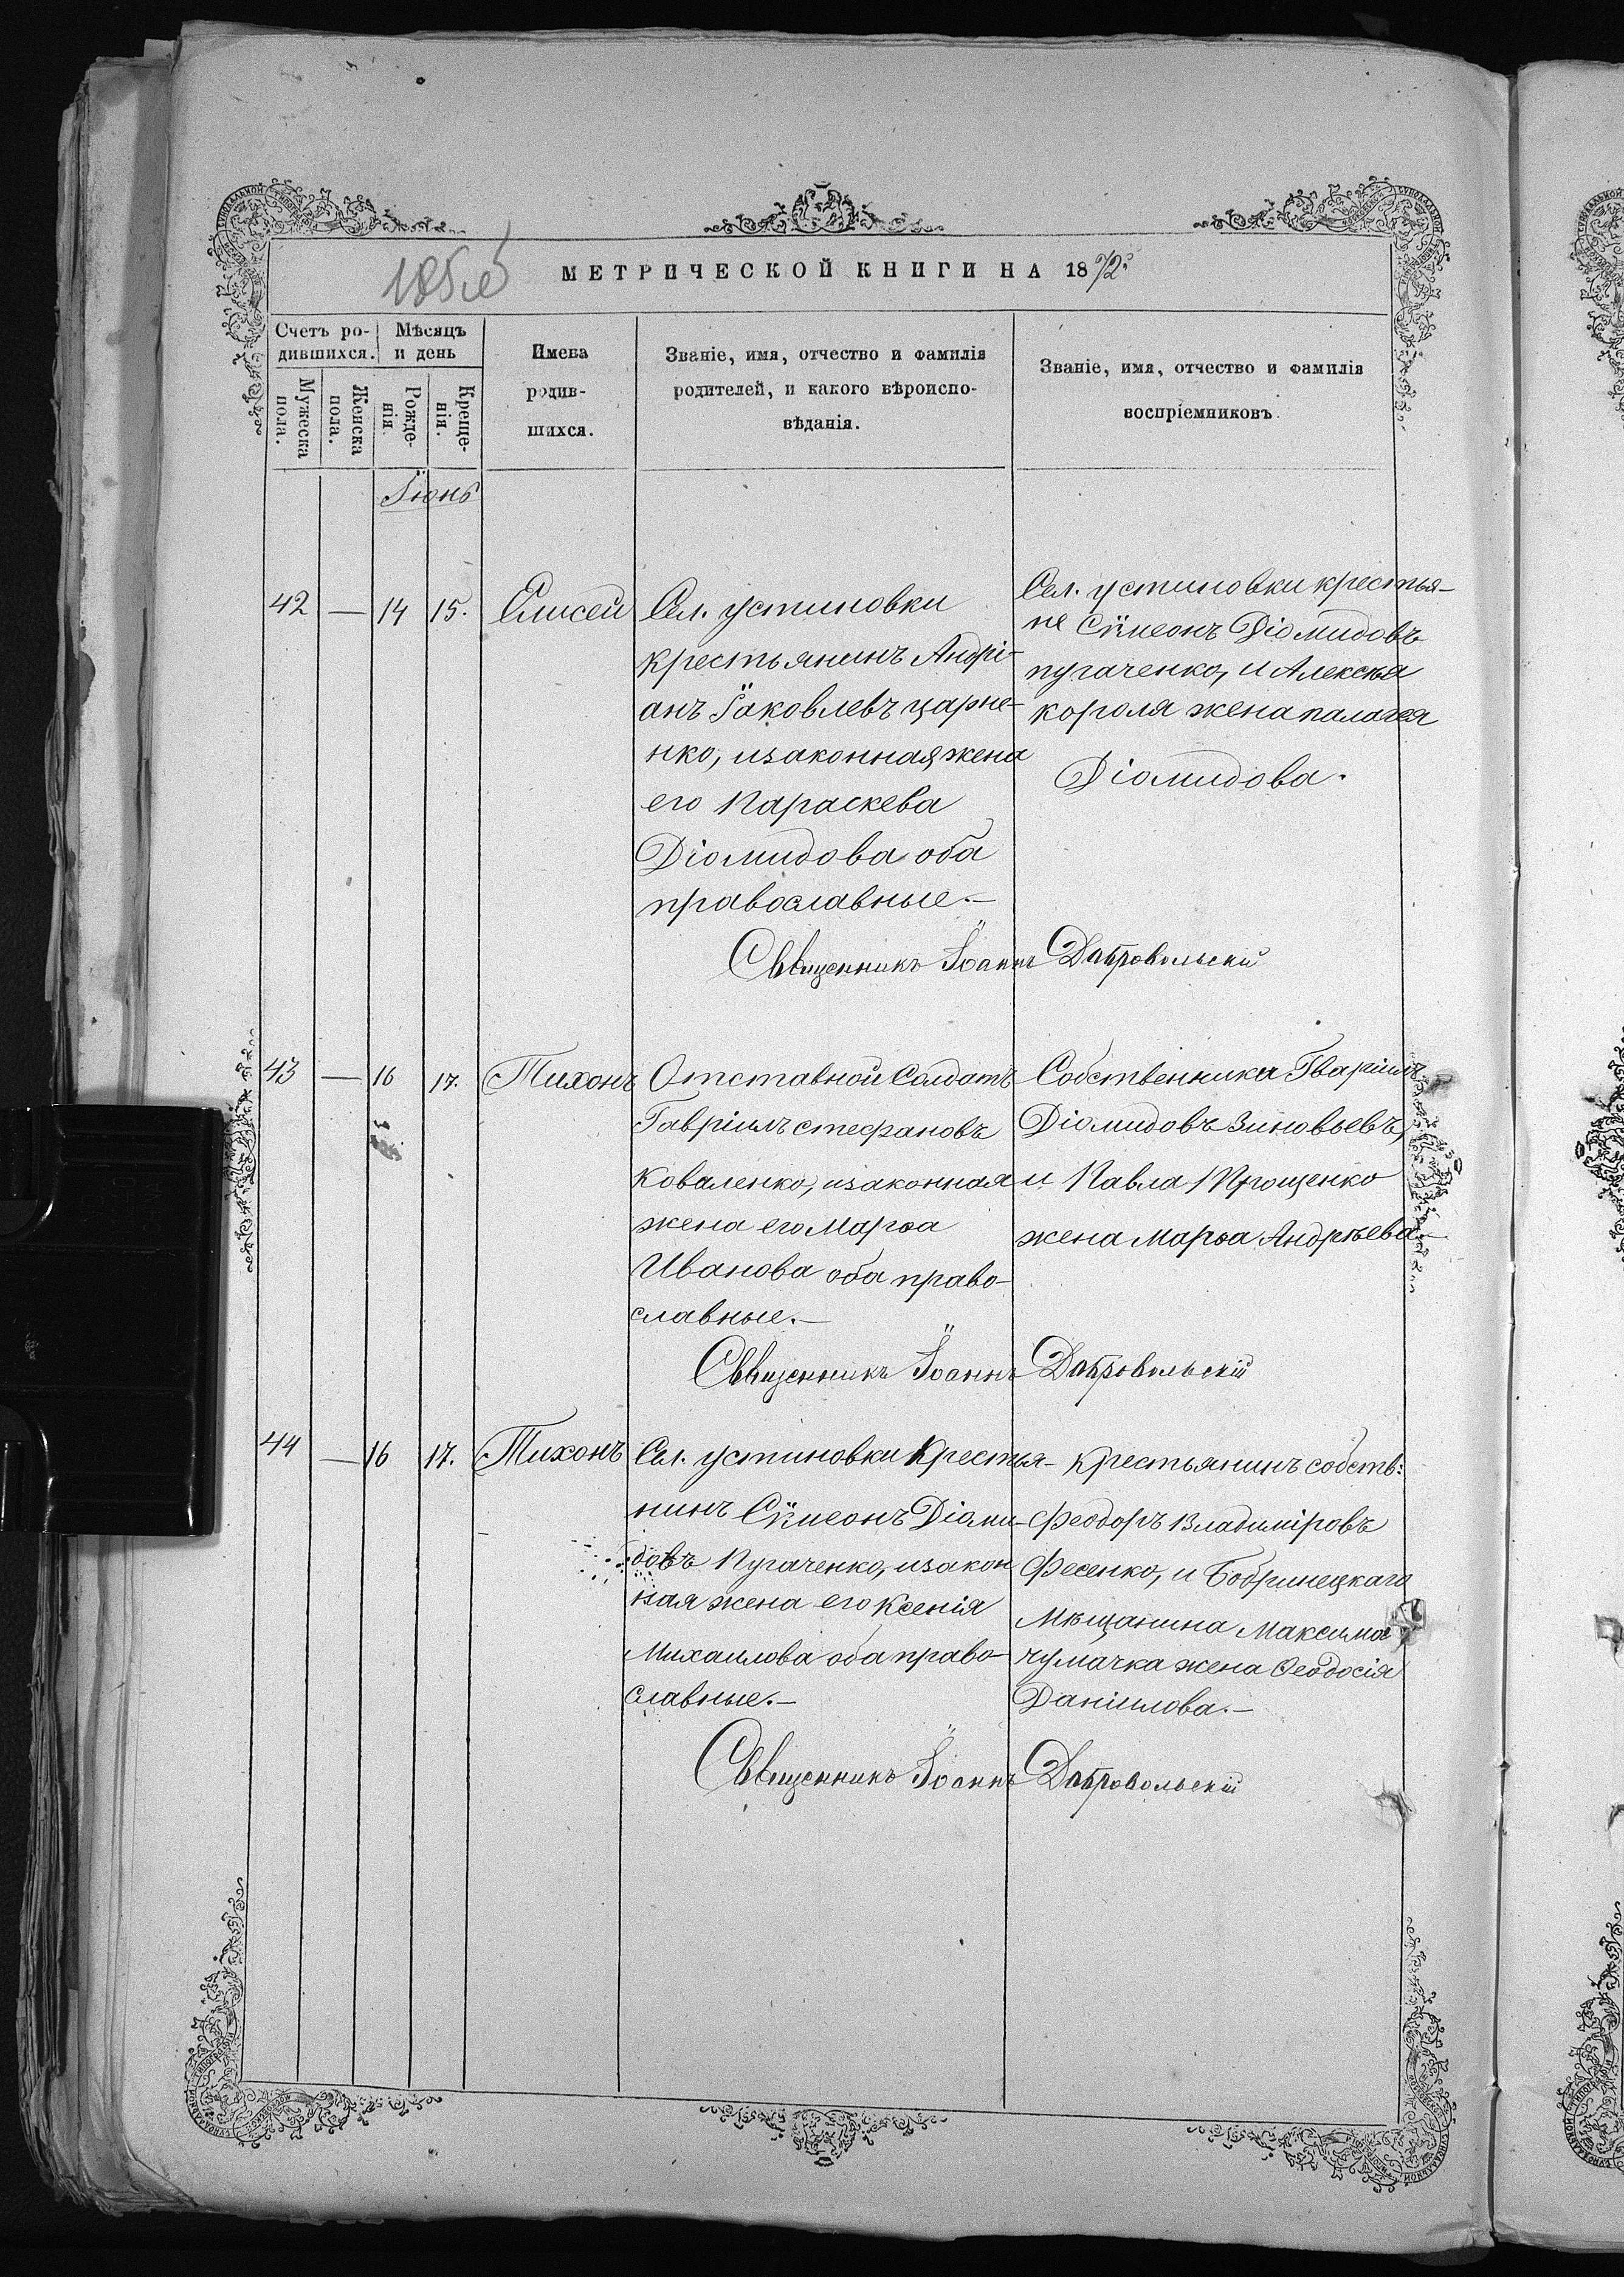 МЕТРИЧЕСКОЙ КНИГИ НА 1872г
Счетъ ро-
дившихся.
Мѣсяцъ
и день
Мужеска
пола.
Женска
пола.
Рожде-
нія.
Креще-
нія.
Имена
родив-
шихся.
Званіе, имя, отчество и фамилія
родителей, и какого вѣроиспо-
вѣданія.
Званіе, имя, отчество и фамилія
воспріемниковъ.
Іюнь
42 — 14 15. Елисей
Сел. устиновки
крестьянинъ Андрі-
анъ Іаковлевъ царне-
нко, изаконная жена
его Параскева
Діомидова оба
православные.—
Сел. устиновки крестья-
не Сѵмеонъ Діомидовъ
пугаченко, и Алексѣя
короля жена палагея
Діомидова.
Священникъ Іоаннъ Добровольскій
43 — 16 17. Тихонъ
Отставной Солдатъ
Гавріилъ стефановъ
Коваленко, изаконная
жена его Марѳа
Иванова оба право-
славные.—
Собственники Гваріилъ
Діомидовъ Зиновьевъ,
и Павла Прощенко
жена Марѳа Андрѣева—
Священникъ Іоаннъ Добровольскій
44 — 16 17. Тихонъ
Сел. устиновки Крестья-
нинъ Сѵмеонъ Діоми-
довъ Пугаченко, изакон
ная жена его Ксенія
Михаилова оба право-
славные.—
крестьянинъ собств:
Феодоръ Владиміровъ
Фесенко, и Бобринецкаго
Мѣщанина Максима
чумачка жена Ѳеодосія
Даніилова.—
Священникъ Іоаннъ Добровольскій